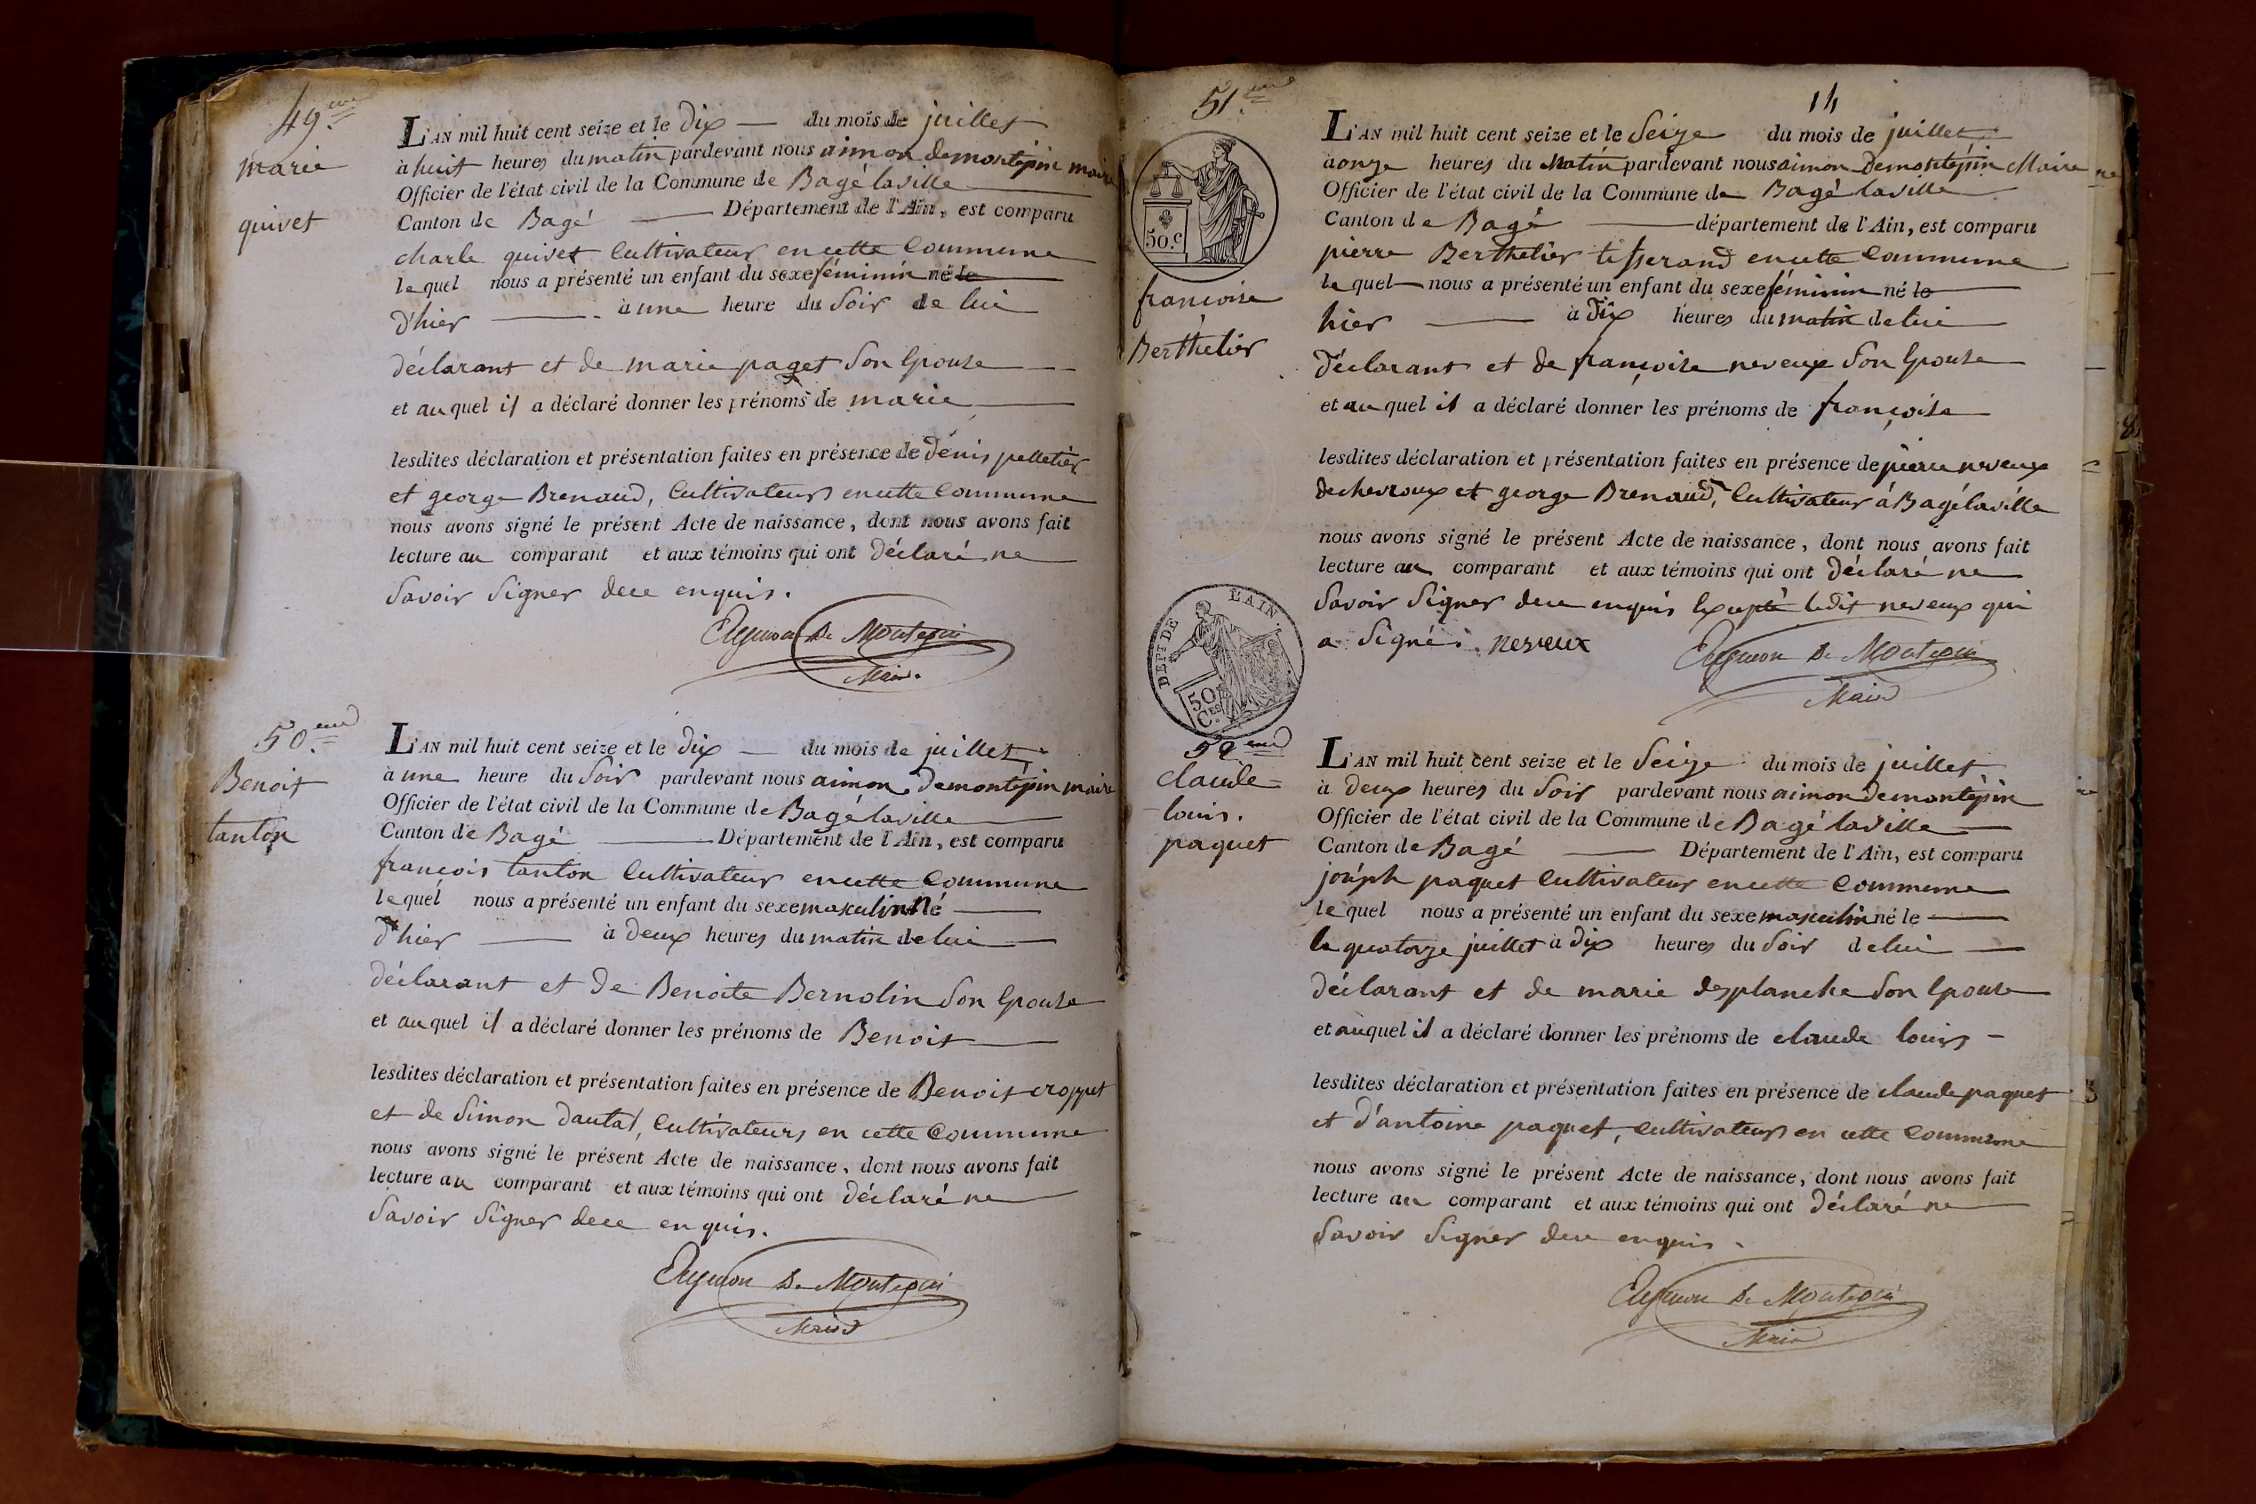 49.eme
marie
quivet
L'AN mil huit cent seize et le dix du mois de juillet
à huit heures du matin pardevant nous aimon demontépin maire
Officier de l'état civil de la Commune de Bagé laville
Canton de Bagé Département de l'Ain, est comparu
charle quivet Cultivateur en cette Commune
lequel nous a présenté un enfant du sexe féminin né le
d'hier à une heure du Soir de lui
déclarant et de marie paget Son Epouse
et auquel il a déclaré donner les prénoms de marie
lesdites déclaration et présentation faites en présence de denis pelletier
et george Brenaud, Cultivateurs en cette Commune
nous avons signé le présent Acte de naissance, dont nous avons fait
lecture au comparant et aux témoins qui ont déclaré ne
Savoir Signer de ce enquis.
Aymon De Montepin
Maire.
50.eme
Benoit
tanton
L'AN mil huit cent seize et le dix du mois de juillet
à une heure du Soir pardevant nous aimon demontépin maire
Officier de l'état civil de la Commune de Bagé laville
Canton de Bagé Département de l'Ain, est comparu
francois tanton Cultivateur en cette Commune
lequel nous a présenté un enfant du sexe masculin né
d'hier à deux heures du matin de lui
déclarant et de Benoite Bernolin Son Epouse
et auquel il a déclaré donner les prénoms de Benoit
lesdites déclaration et présentation faites en présence de Benoit croppet
et de Simon dautal, Cultivateurs en cette Commune
nous avons signé le présent Acte de naissance, dont nous avons fait
lecture au comparant et aux témoins qui ont déclaré ne
Savoir Signer de ce enquis.
Aymon De Montepin
Maire
14
51.eme
50.c
francoise
Berthelier
L'AN mil huit cent seize et le Seize du mois de juillet
à onze heures du Matin pardevant nous aimon Demontépin Maire
Officier de l'état civil de la Commune de Bagé laville
Canton de Bagé département de l'Ain, est comparu
pierre Berthelier tisserand en cette Commune
lequel nous a présenté un enfant du sexe féminin né le
hier à dix heures du matin de lui
déclarant et de françoise neveux Son Epouse
et auquel il a déclaré donner les prénoms de françoise
lesdites déclaration et présentation faites en présence de pierre neveux
de chevroux et george Brenaud, Cultivateur à Bagé laville
nous avons signé le présent Acte de naissance, dont nous avons fait
lecture au comparant et aux témoins qui ont déclaré ne
Savoir Signer de ce enquis Excepté ledit neveux qui
a Signé. neveux
Aymon De Montepin
Maire
DEPT DE L'AIN.
50 Ces
52 eme
claude
louis.
paquet
L'AN mil huit cent seize et le Seize du mois de juillet
à deux heures du Soir pardevant nous aimon Demontépin
Officier de l'état civil de la Commune de Bagé laville
Canton de Bagé Département de l'Ain, est comparu
joseph paquet Cultivateur en cette Commune
lequel nous a présenté un enfant du sexe masculin né le
le quatorze juillet à dix heures du Soir de lui
déclarant et de marie desplanche Son Epouse
et auquel il a déclaré donner les prénoms de claude louis
lesdites déclaration et présentation faites en présence de claude paquet
et d'antoine paquet, Cultivateurs en cette Commune
nous avons signé le présent Acte de naissance, dont nous avons fait
lecture au comparant et aux témoins qui ont déclaré ne
Savoir Signer de ce enquis.
Aymon De Montepin
Maire